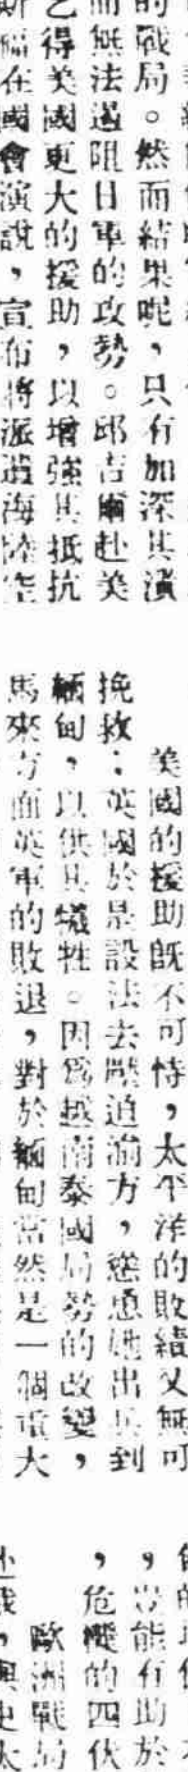 的戰局。然而結果呢，只有加深其潰
而無法遏阻日軍的攻勢。邱吉爾赴美
得美國更大的援助，以增強其抵抗
在國會演說，宣布將派遣海陸空
美國的援助既不可恃，太平洋的敗績又無可
挽救；英國於是設法去壓迫渝方，慫恿她出兵到
緬甸，以供其犧牲。因為越南泰國局勢的改變，
馬來方面英軍的敗退，對於緬甸當然是一個重大
，豈能有助於
，危機的四伏
歐洲戰局